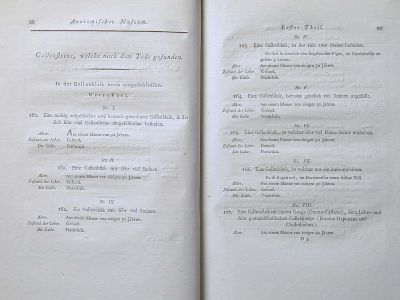 98
Anatomisches Museum.
Gallensteine, welche nach dem Tode gefunden.
In der Gallenblase noch eingeschlossen.
Getrocknet.
Nr. I.
Eine mäßig aufgeblasene und
sich sehr viel Gallensteine eingeschlossen befinden.
Alter. Aus einem Manne von 50 Jahren.
Zustand der Leber. Gesund.
Die Galle. Natürlich.
Nr. II.
Eine Gallenblase mit sehr viel Steinen.
Alter. Aus einem Manne von einigen 50 Jahren.
Zustand der Leber. Gesund.
Die Galle. Natürlich.
Nr. III.
Ein Gallenblase mit sehr viel Steinen.
Alter. Aus einem Manne von einigen 50 Jahren.
Zustand der Leber. Gesund.
Die Galle. Natürlich.
Erster Theil.
99
Nr. IV.
Eine Gallenblase, in der sich zwei Steine befinden.
Aus einem Manne von einigen 50 Jahren.
Zustand der Leber. Gesund.
Die Galle. Natürlich.
Nr. V.
Eine Gallenblase, beinahe gänzlich mit Steinen angefüllt.
Alter. Aus einem Manne von einigen 50 Jahren.
Zustand der Leber. Gesund.
Die Galle. Natürlich.
Nr. VI.
Eine Gallenblase, in welcher sehr viel kleine Steine
Alter. Aus einem Manne von einigen 50 Jahren.
Zustand der Leber. Gesund.
Die Galle. Natürlich.
Nr. VII.
Eine Gallenblase, in welcher nur ein Stein enthalten.
Alter. Aus einem Manne von einigen 50 Jahren.
Zustand der Leber. Gesund.
Die Galle. Natürlich.
Nr. VIII.
167. Eine Gallenblase mit ihrem Gange (Ductus Cysticus), dem Leber- und
dem gemeinschaftlichen Gallengange (Ductus Hepaticus und
Choledochus).
Alter. Aus einem Manne von einigen 50 Jahren.
N 2